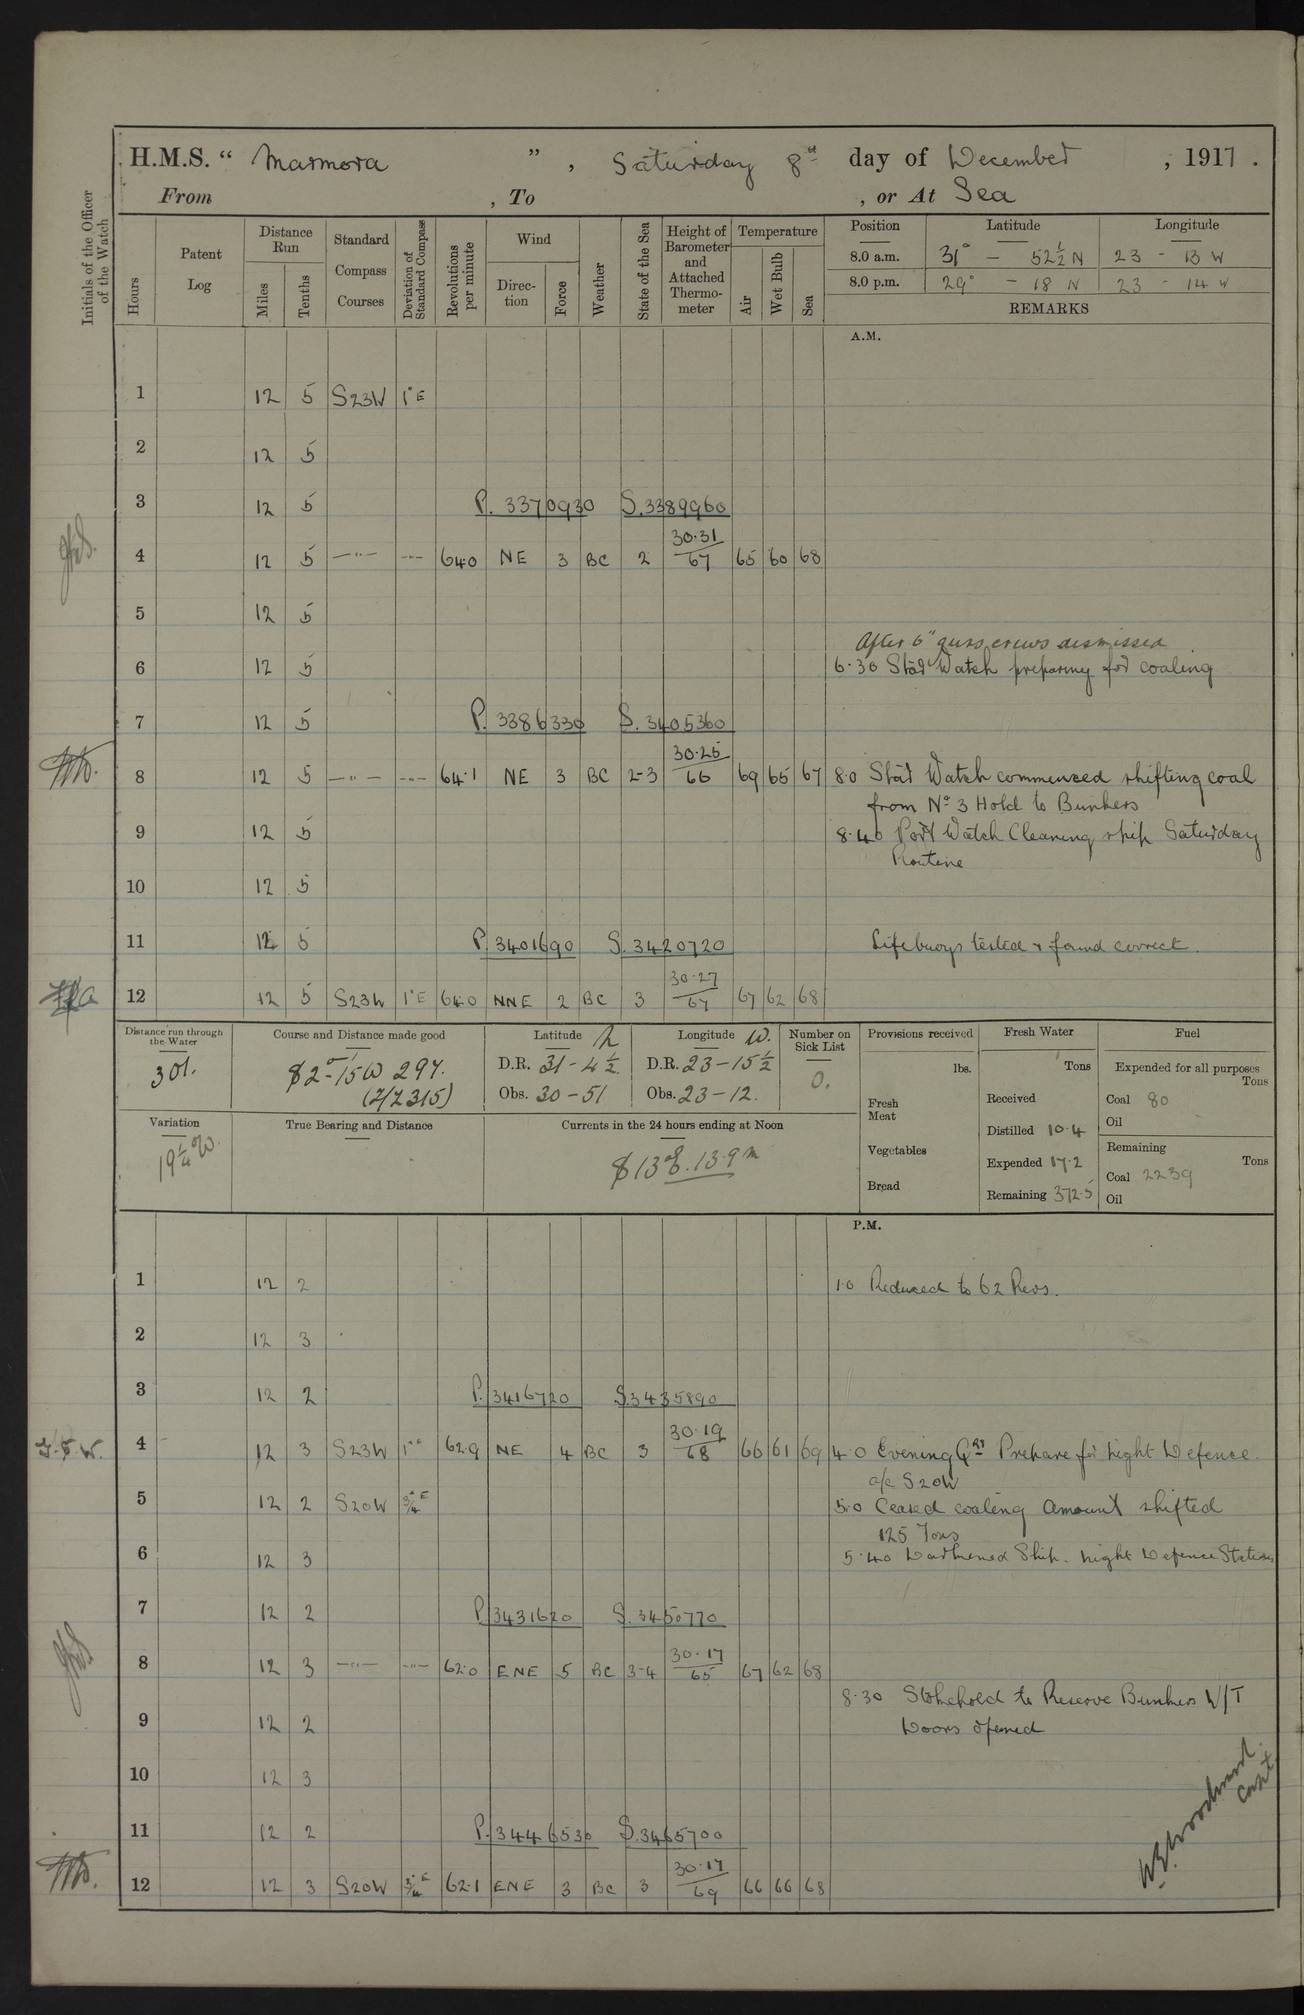 H.M.S. " Marmora ", Saturday 8th day of December, 1917.
From , To , or At Sea
Initials of the Officer of the Watch
Hours
Patent Log
Distance Run
Miles
Tenths
Standard Compass Courses
Deviation of Standard Compass
Revolutions per minute
Wind
Direction
Force
Weather
State of the Sea
Height of Barometer and Attached Thermometer
Temperature
Air
Wet Bulb
Sea
Position Latitude Longitude
8.0 a.m. 31° - 52½ N 23 - 13 W
8.0 p.m. 29° - 18 N 23 - 14 W
REMARKS
A.M.
1 12 5 S23W 1°E
2 12 5
3 12 5 P. 3370930 S. 3389960
4 12 5 —"— —"— 64.0 NE 3 BC 2 30.31/67 65 60 68
5 12 5
After 6" guns crews dismissed
6 12 5 6.30 Stād Watch preparing for coaling
7 12 5 P. 3386330 S. 3405360
8 12 5 —"— —"— 64.1 NE 3 BC 2-3 30.25/66 69 65 67 8.0 Stād Watch commenced shifting coal
from No 3 Hold to Bunkers
9 12 5 8.40 Port Watch Cleaning ship Saturday
Routine
10 12 5
11 12 5 P. 3401690 S. 3420720 Lifebuoys tested & found correct.
12 12 5 S23W 1°E 64.0 NNE 2 BC 3 30.27/67 67 62 68
Distance run through the Water
301.
Course and Distance made good
S 2° - 15' W 297.
(2/2315)
Latitude N
D.R. 31 - 4½
Obs. 30 - 51
Longitude W.
D.R. 23 - 15½
Obs. 23 - 12.
Number on Sick List
0.
Provisions received
lbs.
Fresh Meat
Vegetables
Bread
Fresh Water
Tons
Received
Distilled 10.4
Expended 17.2
Remaining 372.5
Fuel
Expended for all purposes
Tons
Coal 80
Oil
Remaining
Tons
Coal 2239
Oil
Variation
19¼° W.
True Bearing and Distance
Currents in the 24 hours ending at Noon
S 13° E. 13.9 m
P.M.
1 12 2 1.0 Reduced to 62 Revs.
2 12 3
3 12 2 P. 3416720 S. 3435890
J.S.W. 4 12 3 S23W 1°" 62.9 NE 4 BC 3 30.19/68 66 61 69 4.0 Evening Qrs Prepare for night Defence.
a/c S20W
5 12 2 S20W ¾°E 5.0 Ceased coaling amount shifted
125 Tons
6 12 3 5.40 Darkened Ship. Night Defence Stations
7 12 2 P. 3431620 S. 3450770
8 12 3 —"— —"— 62.0 ENE 5 BC 3-4 30.17/65 67 62 68
8.30 Stokehold to Reserve Bunkers W/T
9 12 2 Doors opened
10 12 3
11 12 2 P. 3446530 S. 3465700
12 12 3 S20W ¾°E 62.1 ENE 3 BC 3 30.17/69 66 66 68
Woodward
Capt